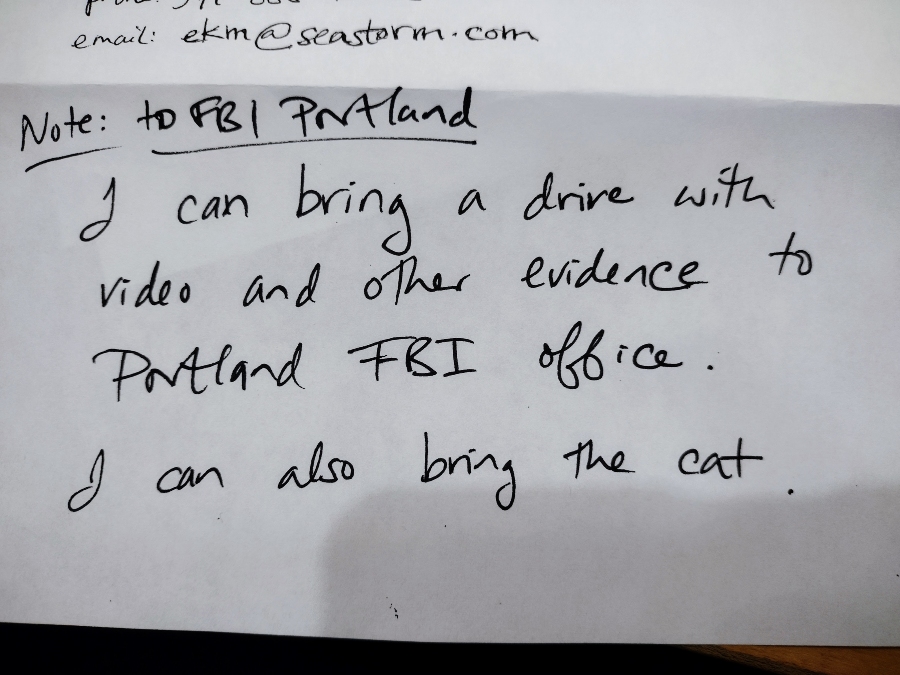 email: ekm@seastorm.com
Note: to FBI Portland
I can bring a drive with
video and other evidence to
Portland FBI office.
I can also bring the cat.